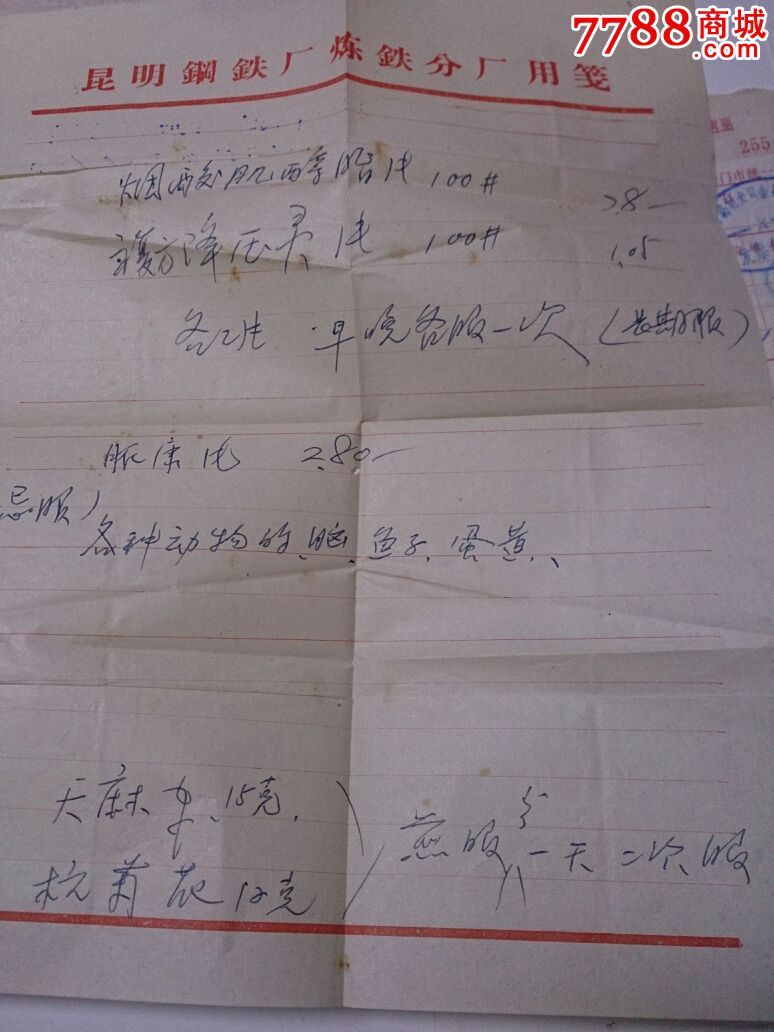 7788商城
.com
昆明鋼鉄厂炼鉄分厂用箋
255
烟酸肌醇酯片 100# 28—
複方降压灵片 100# 1.05
各二片 早晚各服一次 (长期服)
脈康片 2.80—
忌服)
各种动物的脑、鱼子、蛋黄、
天麻 15克、
杭菊花 12克
煎服 分一天二次服